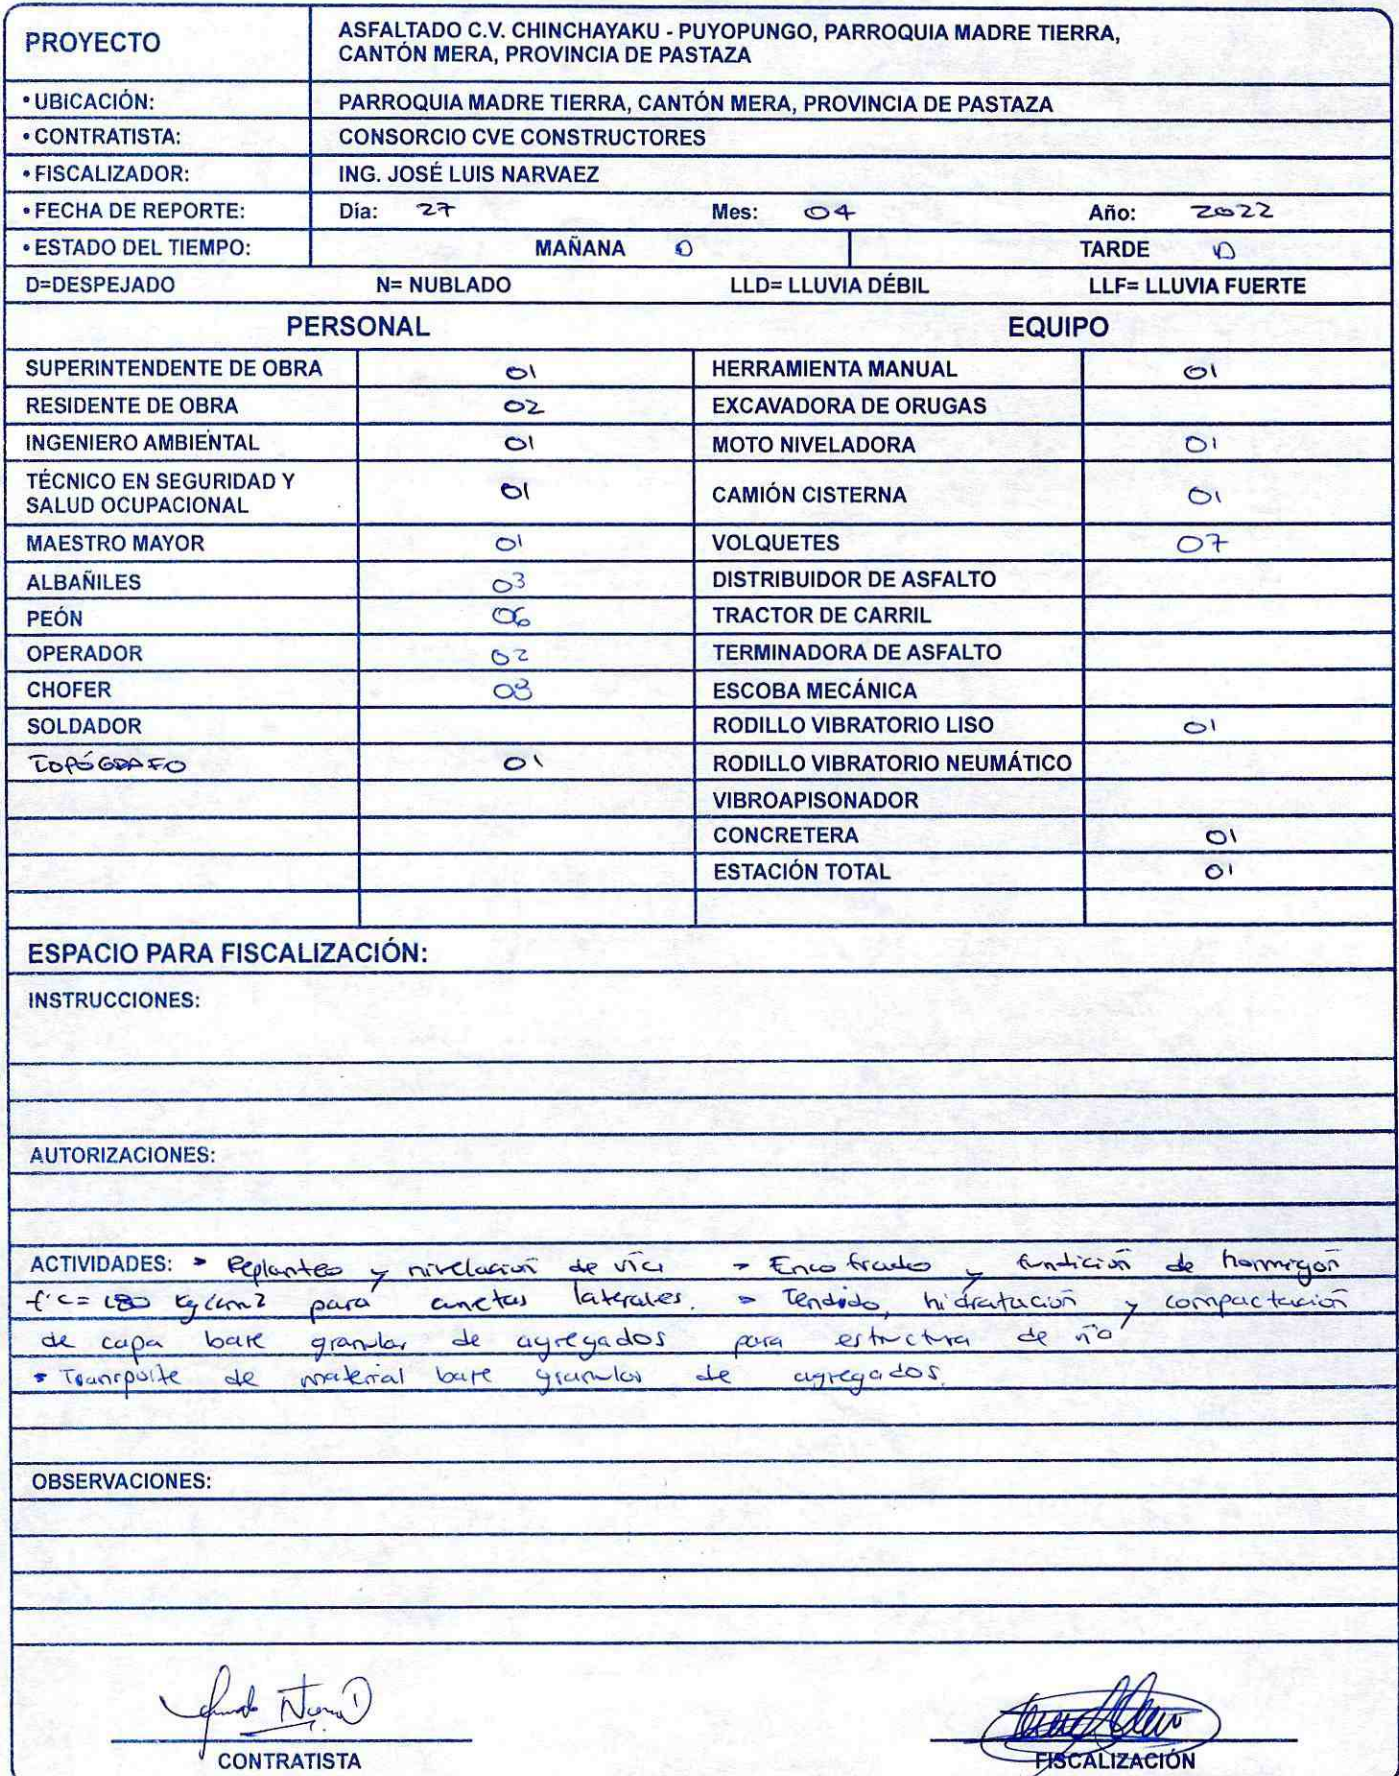 PROYECTO
ASFALTADO C.V. CHINCHAYAKU - PUYOPUNGO, PARROQUIA MADRE TIERRA,
CANTÓN MERA, PROVINCIA DE PASTAZA
• UBICACIÓN: PARROQUIA MADRE TIERRA, CANTÓN MERA, PROVINCIA DE PASTAZA
• CONTRATISTA: CONSORCIO CVE CONSTRUCTORES
• FISCALIZADOR: ING. JOSÉ LUIS NARVAEZ
• FECHA DE REPORTE: Día: 27 Mes: 04 Año: 2022
• ESTADO DEL TIEMPO: MAÑANA D TARDE D
D=DESPEJADO N= NUBLADO LLD= LLUVIA DÉBIL LLF= LLUVIA FUERTE
PERSONAL EQUIPO
SUPERINTENDENTE DE OBRA 01 HERRAMIENTA MANUAL 01
RESIDENTE DE OBRA 02 EXCAVADORA DE ORUGAS
INGENIERO AMBIENTAL 01 MOTO NIVELADORA 01
TÉCNICO EN SEGURIDAD Y
SALUD OCUPACIONAL 01 CAMIÓN CISTERNA 01
MAESTRO MAYOR 01 VOLQUETES 07
ALBAÑILES 03 DISTRIBUIDOR DE ASFALTO
PEÓN 06 TRACTOR DE CARRIL
OPERADOR 02 TERMINADORA DE ASFALTO
CHOFER 03 ESCOBA MECÁNICA
SOLDADOR RODILLO VIBRATORIO LISO 01
TOPÓGRAFO 01 RODILLO VIBRATORIO NEUMÁTICO
VIBROAPISONADOR
CONCRETERA 01
ESTACIÓN TOTAL 01
ESPACIO PARA FISCALIZACIÓN:
INSTRUCCIONES:
AUTORIZACIONES:
ACTIVIDADES: • Replanteo y nivelación de vía • Encofrado y fundición de hormigón
f'c= 180 kg/cm2 para cunetas laterales. • Tendido, hidratación y compactación
de capa base granular de agregados para estructura de vía
• Transporte de material base granular de agregados.
OBSERVACIONES:
CONTRATISTA FISCALIZACIÓN